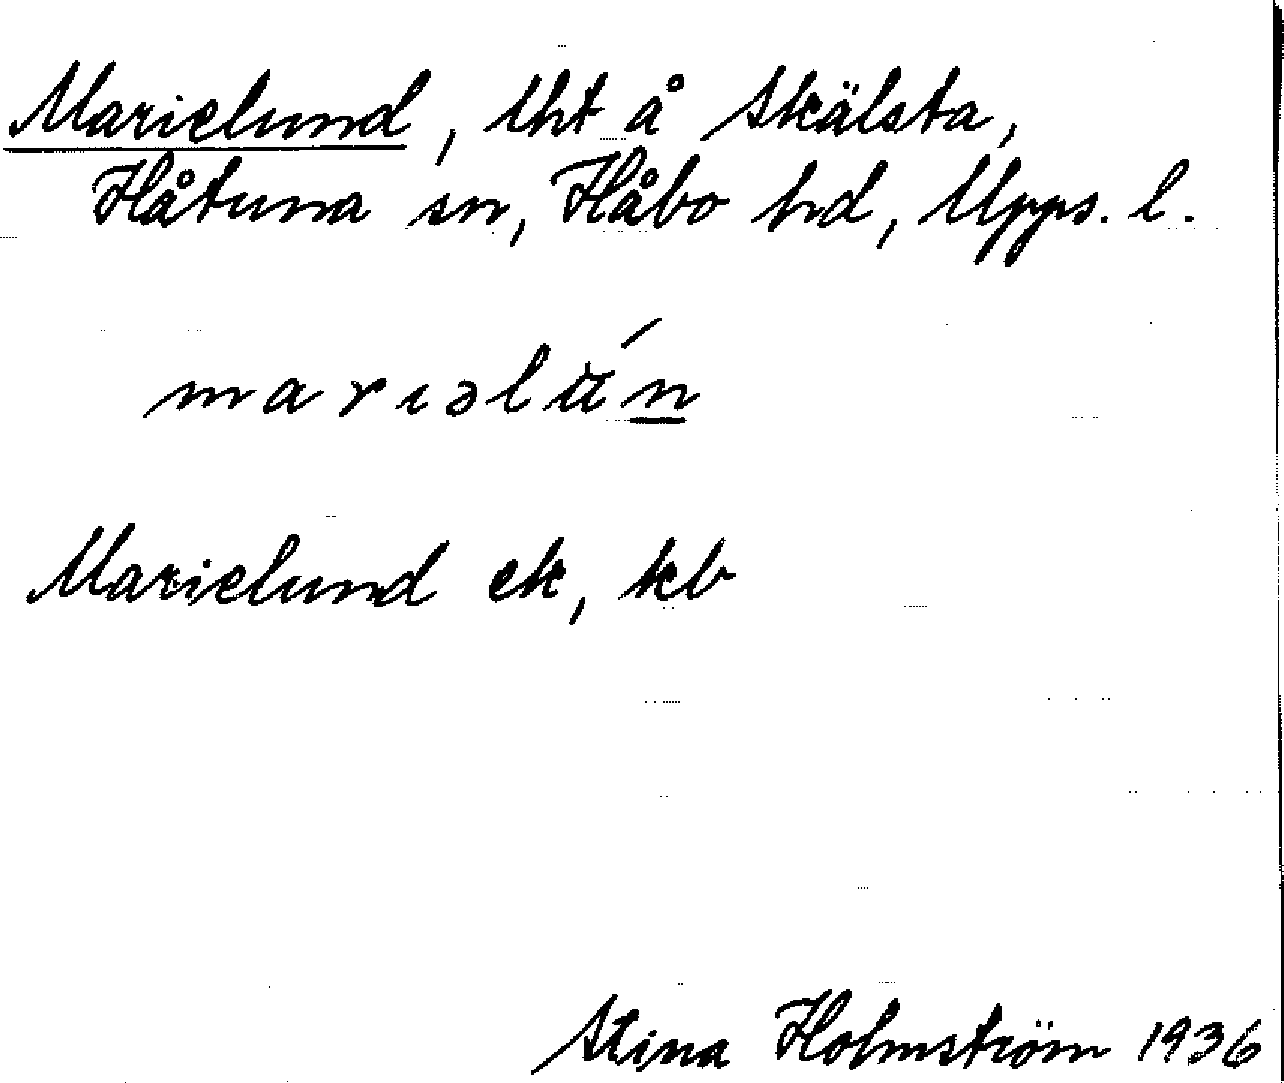 Marielund, lht å Skälsta,
Håtuna sn, Håbo hd, Upps. l.
mariəlún
Marielund ek, kb
Stina Holmström 1936